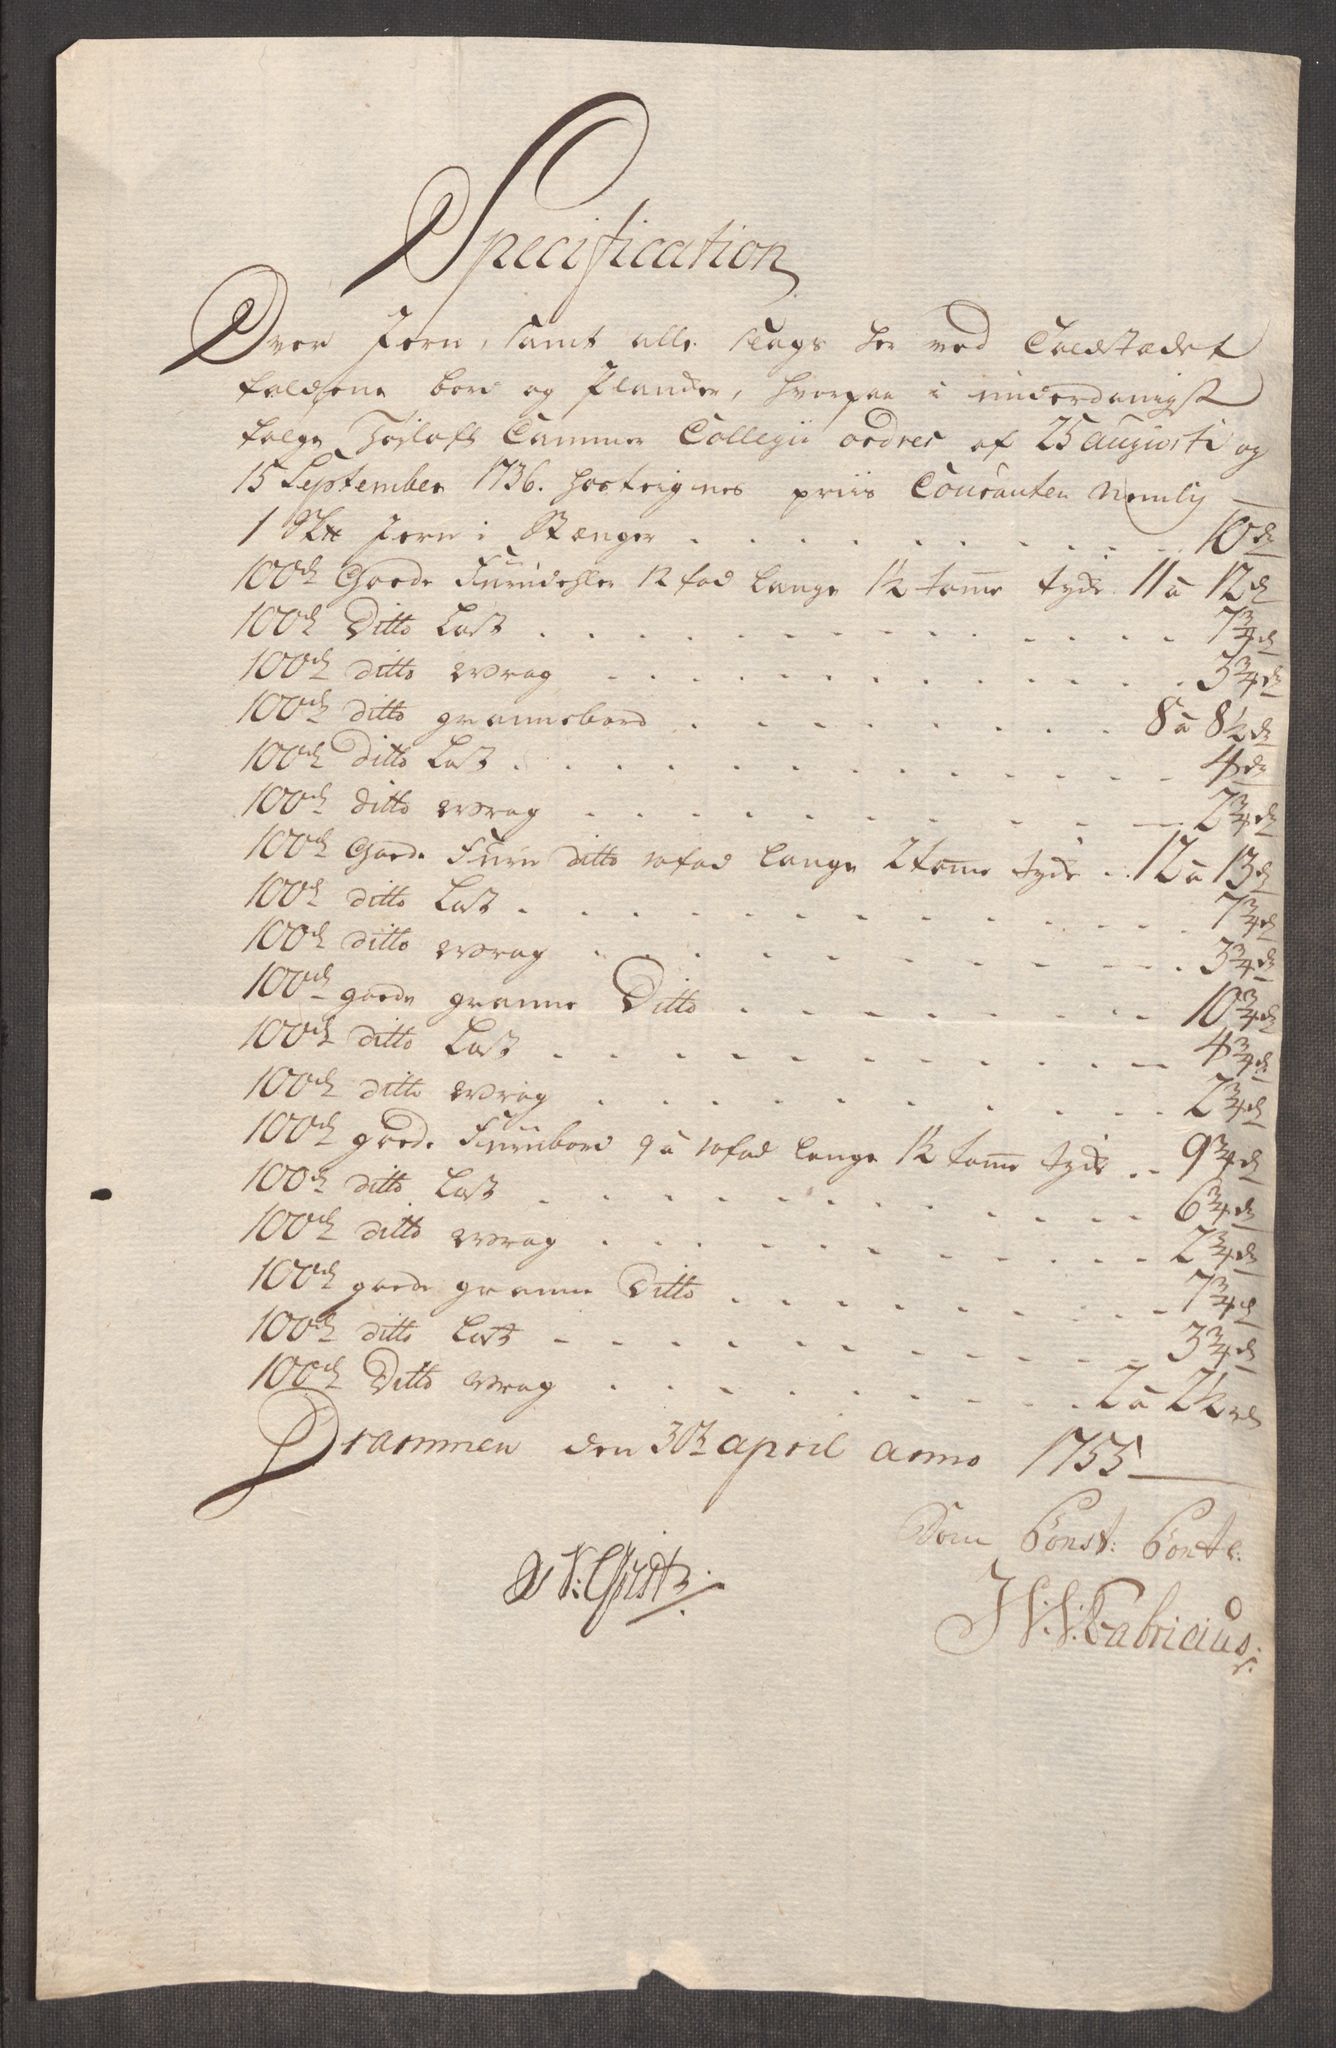 Specification
Over Jern, samt alle slags her ved Toldstædet
faldene bord og Plancker, hvorpaa i underdanigst
følge Høylofl: Cammer Collegii ordres af 25 Augusti og
15 September 1736. priis Couranten Nemlig
1 Sk℔ Jern i Stænger . . . . . . . . . 10 rd
100d Goede Furudehler 12 fod lange 1½ tomme tyde 11 a 12 rd
100d Ditto Last . . . . . . . . . . . 7¾ rd
100d ditto wrag . . . . . . . . . . . 3¾ rd
100d ditto grannebord . . . . . . . 8 a 8½ rd
100d Ditto Last . . . . . . . . . . . 4 rd
100d ditto wrag . . . . . . . . . . . 2¾ rd
100d Goede Furu ditto 10 fod lange 2 tomme tyde . . 12 a 13 rd
100d ditto Last . . . . . . . . . . . 7¾ rd
100d ditto wrag . . . . . . . . . . . 3¾ rd
100d goede granne Ditto . . . . . . . . 10¾ rd
100d ditto Last . . . . . . . . . . . 4¾ rd
100d ditto wrag . . . . . . . . . . . 2¾ rd
100d goede Furubord 9 a 10 fod lange 1½ tomme tyde . . 9¾ rd
100d ditto Last . . . . . . . . . . . 6¾ rd
100d ditto wrag . . . . . . . . . . . 2¾ rd
100d goede granne Ditto . . . . . . . . 7¾ rd
100d ditto Last . . . . . . . . . . . 3¾ rd
100d Ditto wrag . . . . . . . . . 2 a 2½ rd
Drammen den 30te april anno 1755
Som Const: Contr:
Fabricius